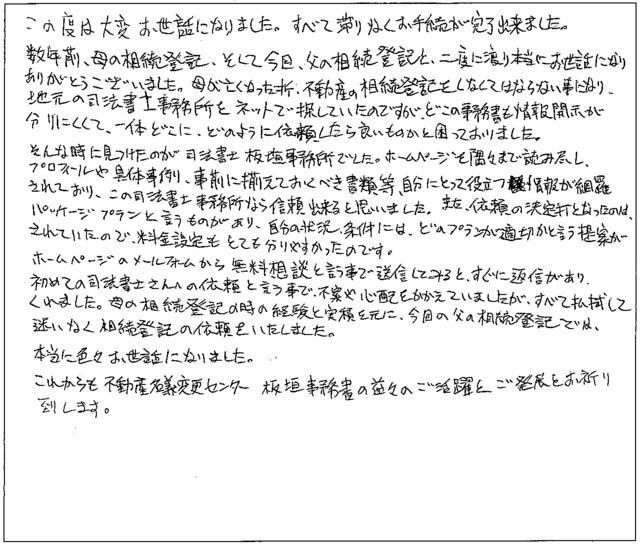 この度は大変お世話になりました。すべて滞りなくお手続が完了出来ました。
数年前、母の相続登記、そして今回、父の相続登記と、二度に渡り本当にお世話になり
ありがとうございました。母が亡くなった折、不動産の相続登記をしなくてはならない事になり、
地元の司法書士事務所をネットで探していたのですが、どこの事務書も情報開示が
分りにくくて、一体どこに、どのように依頼したら良いものかと困っておりました。
そんな時に見つけたのが司法書士 板垣事務所でした。ホームページを隅々まで読み尽し、
プロフィールや具体事例、事前に揃えておくべき書類等、自分にとって役立つ情報が網羅
されており、この司法書士事務所なら信頼出来ると思いました。また、依頼の決定打となったのは、
パッケージプランと言うものがあり、自分の状況、条件には、どのプランが適切かと言う提案が
されていたので、料金設定もとても分りやすかったのです。
ホームページのメールフォームから無料相談と言う事で送信してみると、すぐに返信があり、
初めての司法書士さんへの依頼と言う事で、不安や心配をかかえていましたが、すべて払拭して
くれました。母の相続登記の時の経験と実積を元に、今回の父の相続登記では、
迷いなく相続登記の依頼をいたしました。
本当に色々お世話になりました。
これからも不動産名義変更センター 板垣事務書の益々のご活躍と、ご発展をお祈り
致します。